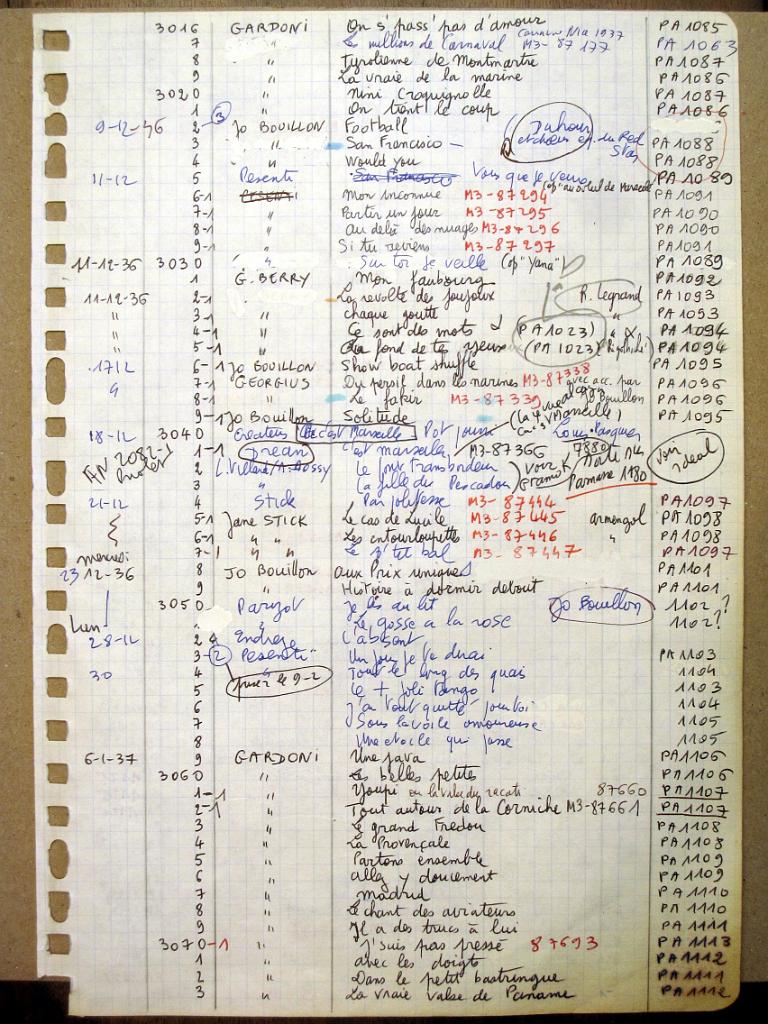 3016 GARDONI On s'pass' pas d'amour PA 1085
7 " Les millions de Carnaval M3-87177 1937 PA 1063
8 " Tyrolienne de Montmartre PA 1087
9 " La vraie de la marine PA 1086
3020 " Nini Craquignolle PA 1087
1 " On tient le coup PA 1086
9-12-36 2 3 Jo BOUILLON Football
3 " San Francisco — et choeurs du Red Star PA 1088
4 " Would you PA 1088
11-12 5 Pesenti San Francisco Vous que je veux PA 1089
6-1 PESENTI Mon inconnue M3-87294 PA 1091
7-1 " Partir un jour M3-87295 PA 1090
8-1 " Au delà des nuages M3-87296 PA 1090
9-1 " Si tu reviens M3-87297 PA 1091
11-12-36 3030 " Sur toi je veille (op "Yana") PA 1089
1 G. BERRY Mon faubourg PA 1092
11-12-36 2-1 La révolte des joujoux R. Legrand PA 1093
" 3-1 " chaque goutte " PA 1093
" 4-1 " Ce sont des mots (PA 1023) " PA 1094
" 5-1 " Au fond de tes yeux (PA 1023) PA 1094
1712 6-1 Jo BOUILLON Show boat shuffle PA 1095
7-1 GEORGIUS Du persil dans les narines M3-87338 avec acc. par Jo Bouillon PA 1096
8-1 " Le fakir M3-87339 PA 1096
9-1 Jo Bouillon Solitude PA 1095
18-12 3040 Createurs C'est Marseille Pot pourri
1-1 Grean C'est marseille M3-87366
2 L. Villard/A. Dossy Le pont Transbordeur voir
3 La fille du Pescadou Parnasse 1180 voir ideal
21-12 4 Stick Par politesse M3-87444 PA 1097
5-1 Jane STICK Le cas de Lucile M3-87445 armengol PA 1098
6-1 " " Les entourloupettes M3-87446 " PA 1098
7-1 " " Le p'tit bal M3-87447 PA 1097
mercredi 23 12-36 8 Jo BOUILLON aux Prix uniques PA 1101
9 " Histoire à dormir debout PA 1101
3050 Parizot Je lis au lit Jo Bouillon 1102 ?
" Le gosse à la rose 1102 ?
Lun 28-12 2 L'absent
3 2 Pesenti Un jour je te dirai PA 1103
30 4 " Tout le long des quais 1104
5 Le + joli tango 1103
6 J'ai tout quitté pour toi 1104
7 Sous la voile amoureuse 1105
8 Une etoile qui passe 1105
6-1-37 9 GARDONI Une java PA 1106
3060 " Les belles petites PA 1106
1-1 " Youpi 87660 PA 1107
2-1 " Tout autour de la Corniche M3-87661 PA 1107
3 " Le grand Fredou PA 1108
4 " La Provençale PA 1108
5 " Partons ensemble PA 1109
6 " allez y doucement PA 1109
7 " Madrid PA 1110
8 " Le chant des aviateurs PA 1110
9 " Il a des trucs à lui PA 1111
3070-1 " J'suis pas pressé 87693 PA 1113
1 " avec les doigts PA 1112
2 " Dans le petit bastringue PA 1111
3 " La vraie valse de Paname PA 1112